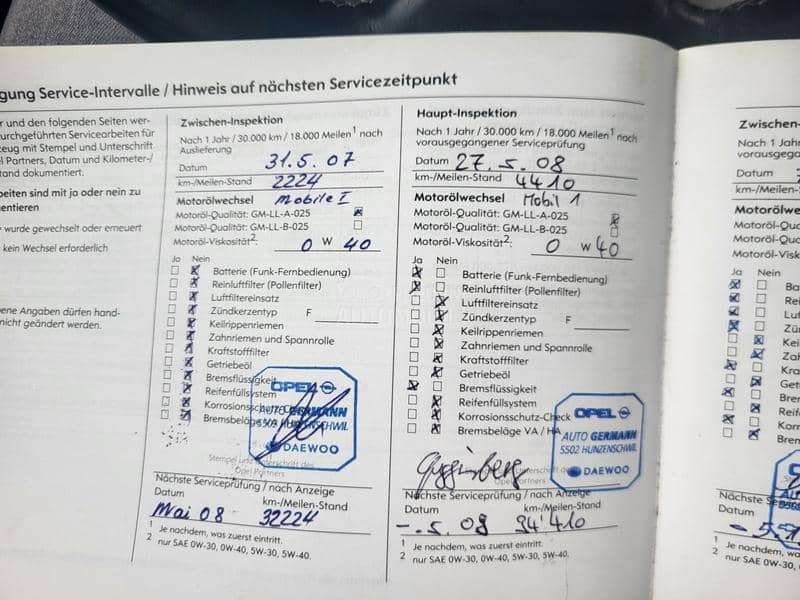 gung Service-Intervalle / Hinweis auf nächsten Servicezeitpunkt
r und den folgenden Seiten wer-
urchgeführten Servicearbeiten für
zeug mit Stempel und Unterschrift
l Partners, Datum und Kilometer-/
tand dokumentiert.
beiten sind mit ja oder nein zu
entieren
wurde gewechselt oder erneuert
kein Wechsel erforderlich
ene Angaben dürfen hand-
nicht geändert werden.
Zwischen-Inspektion
Nach 1 Jahr / 30.000 km / 18.000 Meilen¹ nach
Auslieferung
Datum 31.5.07
km-/Meilen-Stand 2224
Motorölwechsel Mobile 1
Motoröl-Qualität: GM-LL-A-025
GM-LL-B-025
Motoröl-Viskosität²: 0 W 40
Ja Nein
Batterie (Funk-Fernbedienung)
Reinluftfilter (Pollenfilter)
Luftfiltereinsatz
Zündkerzentyp F
Keilrippenriemen
Zahnriemen und Spannrolle
Kraftstofffilter
Getriebeöl
Bremsflüssigkeit
Reifenfüllsystem
Korrosionsschutz-Check
Bremsbeläge
OPEL
AUTO GERMANN
5502 HUNZENSCHWIL
DAEWOO
Stempel und Unterschrift des
Opel Partners
Nächste Serviceprüfung / nach Anzeige
Datum km-/Meilen-Stand
Mai 08 32224
1 Je nachdem, was zuerst eintritt.
2 nur SAE 0W-30, 0W-40, 5W-30, 5W-40.
Haupt-Inspektion
Nach 1 Jahr / 30.000 km / 18.000 Meilen¹ nach
vorausgegangener Serviceprüfung
Datum 27.5.08
km-/Meilen-Stand 4410
Motorölwechsel Mobil 1
Motoröl-Qualität: GM-LL-A-025
GM-LL-B-025
Motoröl-Viskosität²: 0 W 40
Ja Nein
Batterie (Funk-Fernbedienung)
Reinluftfilter (Pollenfilter)
Luftfiltereinsatz
Zündkerzentyp F
Keilrippenriemen
Zahnriemen und Spannrolle
Kraftstofffilter
Getriebeöl
Bremsflüssigkeit
Reifenfüllsystem
Korrosionsschutz-Check
Bremsbeläge VA / HA
OPEL
AUTO GERMANN
5502 HUNZENSCHWIL
DAEWOO
Opel Partners
Nächste Serviceprüfung / nach Anzeige
Datum km-/Meilen-Stand
-.5.09 34'410
1 Je nachdem, was zuerst eintritt.
2 nur SAE 0W-30, 0W-40, 5W-30, 5W-40.
Zwischen-
Nach 1 Jahr /
vorausgegange
Datum
km-/Meilen-Stan
Motorölwech
Motoröl-Qualit
Motoröl-Viskos
Ja Nein
Ba
Re
Luf
Zün
Kei
Zah
Kra
Getr
Brem
Reif
Korr
Brem
Nächste Service
Datum
1 Je nachdem,
2 nur SAE 0W-